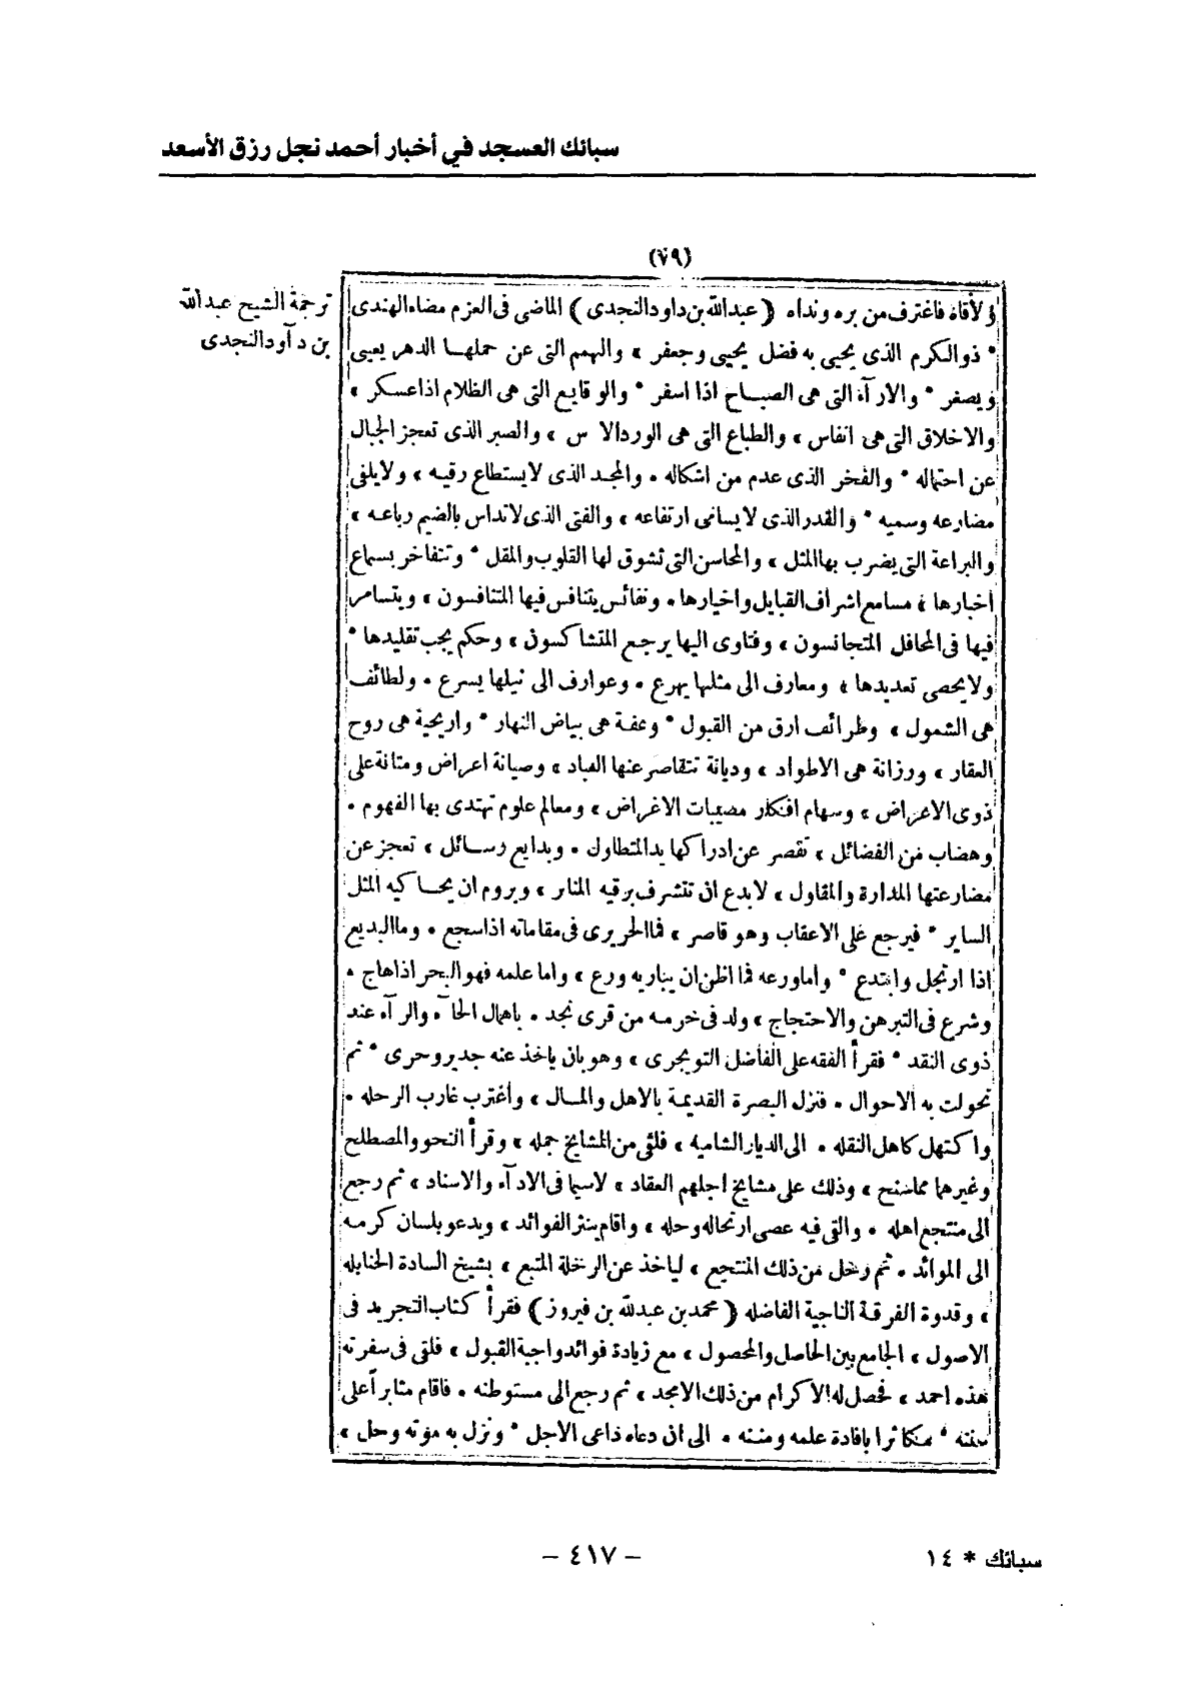 سبائك العسجد في أخبار أحمد نجل رزق الأسعد
(٧٩)
ترجمة الشيخ عبدالله
بن دآود النجدى
ولاقاه فاغترف من بره ونداه ( عبدالله بن داود النجدى ) الماضى فى العزم مضاء الهندى
* ذو الكرم الذى يحيى به فضل يحيى وجعفر » والهمم التى عن حملها الدهر يعيى
ويصفر * والارآء التى هى الصباح اذا اسفر * والوقايع التى هى الظلام اذا عسكر »
والاخلاق التى هى انفاس » والطباع التى هى الورد الا س » والصبر الذى تعجز الجبال
عن احتماله * والفخر الذى عدم من اشكاله * والمجد الذى لا يستطاع رقيه » ولا يلفى
مضارعه وسميه * والقدر الذى لا يسامى ارتفاعه » والفتى الذى لا تداس بالضيم رباعه »
والبراعة التى يضرب بها المثل » والمحاسن التى تشوق لها القلوب والمقل * وتتفاخر بسماع
اخبارها » مسامع اشراف القبايل واخيارها * ونفائس يتنافس فيها المتنافسون » ويتسامر
فيها فى المحافل المتجانسون » وفتاوى اليها يرجع المتشاكسون » وحكم يجب تقليدها *
ولا يحصى تعديدها » ومعارف الى مثلها يهرع * وعوارف الى نيلها يسرع * ولطائف
هى الشمول » وظرائف ارق من القبول * وعفة هى بياض النهار * واريحية هى روح
العقار » ورزانة هى الاطواد » وديانة تتقاصر عنها العباد » وصيانة اعراض ومتانة على
ذوى الاعراض » وسهام افكار مصيبات الاغراض » ومعالم علوم تهتدى بها الفهوم *
وهضاب من الفضائل » تقصر عن ادراكها يد المتطاول * وبدايع رسائل » تعجز عن
مضارعتها المدارة والمقاول » لا بدع ان تتشرف برقيه المنار » ويروم ان يحاكيه المثل
الساير * فيرجع على الاعقاب وهو قاصر » فما الحريرى فى مقاماته اذا سجع * وما البديع
اذا ارتجل وابتدع * واما ورعه فما اظن ان يباريه ورع » واما علمه فهو البحر اذا هاج *
وشرع فى التبرهن والاحتجاج » ولد فى خرمه من قرى نجد * باهمال الحآء والرآء عند
ذوى النقد * فقرأ الفقه على الفاضل التويجرى » وهو بان ياخذ عنه جدير وحرى * ثم
تحولت به الاحوال * فنزل البصرة القديمة بالاهل والمال » واغترب غارب الرحله *
واكتهل كاهل النقله * الى الديار الشاميه » فلقى من المشايخ جمله » وقرأ النحو والمصطلح
وغيرهما مما سنح » وذلك على مشايخ اجلهم العقاد » لاسيما فى الادآء والاسناد » ثم رجع
الى منتجع اهله * والقى فيه عصى ارتحاله وحله » واقام ينثر الفوائد » ويدعو بلسان كرمه
الى الموائد * ثم رحل من ذلك المنتجع » لياخذ عن الرحلة المتبع » بشيخ السادة الحنابله
» وقدوة الفرقة الناجية الفاضله ( محمد بن عبدالله بن فيروز ) فقرأ كتاب التجريد فى
الاصول » الجامع بين الحاصل والمحصول » مع زيادة فوائد واجبة القبول » فلقى فى سفرته
هذه احمد » فحصل له الاكرام من ذلك الامجد » ثم رجع الى مستوطنه * فاقام مثابراً على
سننه * متكاثرا بافادة علمه ومننه * الى ان دعاه داعى الاجل * ونزل به موته وحل »
سبائك * ١٤
– ٤١٧ –